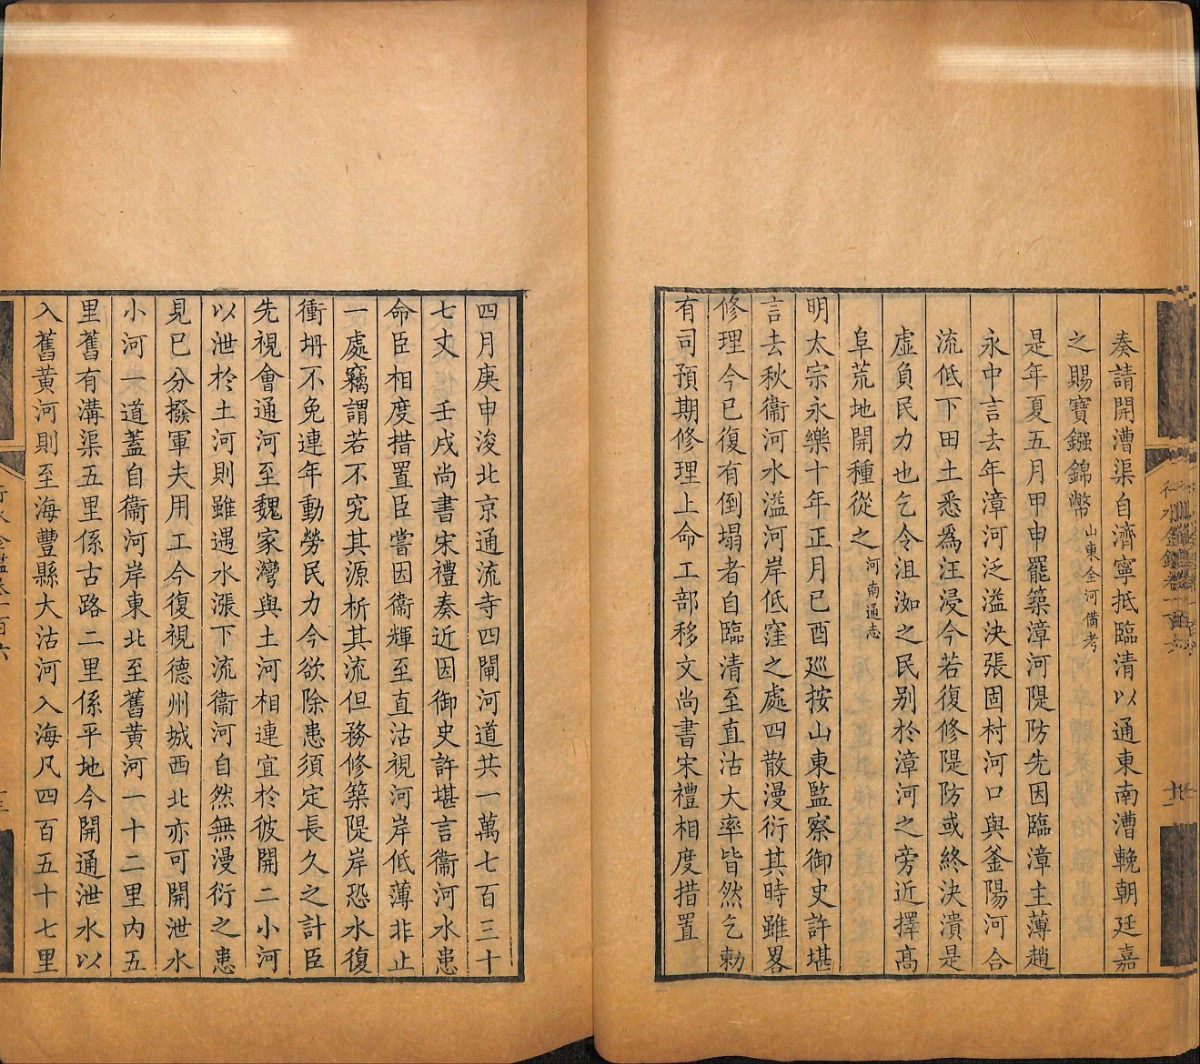 奏請開漕渠自濟寧抵臨清以通東南漕輓朝廷嘉
之賜寶鏹錦幣山東全河備考
是年夏五月甲申罷築漳河隄防先因臨漳主薄趙
永中言去年漳河泛溢決張固村河口與釜陽河合
流低下田土悉爲汪浸今若復修隄防或終決潰是
虛負民力也乞令沮洳之民別於漳河之旁近擇高
阜荒地開種從之河南通志
明太宗永樂十年正月己酉廵按山東監察御史許堪
言去秋衞河水溢河岸低窪之處四散漫衍其時雖畧
修理今已復有倒塌者自臨清至直沽大率皆然乞勅
有司預期修理上命工部移文尚書宋禮相度措置
四月庚申浚北京通流寺四閘河道共一萬七百三十
七丈 壬戌尚書宋禮奏近因御史許堪言衞河水患
命臣相度措置臣嘗因衞輝至直沽視河岸低薄非止
一處竊謂若不究其源析其流但務修築隄岸恐水復
衝坍不免連年動勞民力今欲除患須定長久之計臣
先視會通河至魏家灣與土河相連宜於彼開二小河
以泄於土河則雖遇水漲下流衞河自然無漫衍之患
見已分撥軍夫用工今復視德州城西北亦可開泄水
小河一道蓋自衞河岸東北至舊黄河一十二里内五
里舊有溝渠五里係古路二里係平地今開通泄水以
入舊黄河則至海豐縣大沽河入海凡四百五十七里